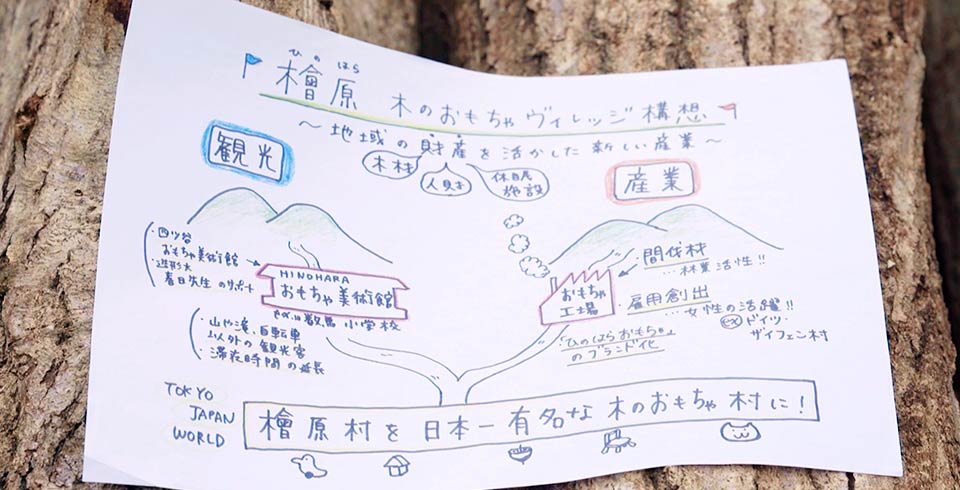 ひの はら
檜原 木のおもちゃヴィレッジ構想
～地域の財産を活かした新しい産業～
木材
人財
休眠
施設
観光
産業
・四ツ谷
おもちゃ美術館
・造形大
春日先生のサポート
HINOHARA
おもちゃ美術館
数馬小学校
・山や滝、自転車
以外の観光客
・滞在時間の延長
おもちゃ
工場
間伐材
…林業活性!!
雇用創出
…女性の活躍!!
ex ドイツ・
ザイフェン村
「ひのはらおもちゃ」
のブランド化
TOKYO
JAPAN
WORLD
檜原村を日本一有名な木のおもちゃ村に!